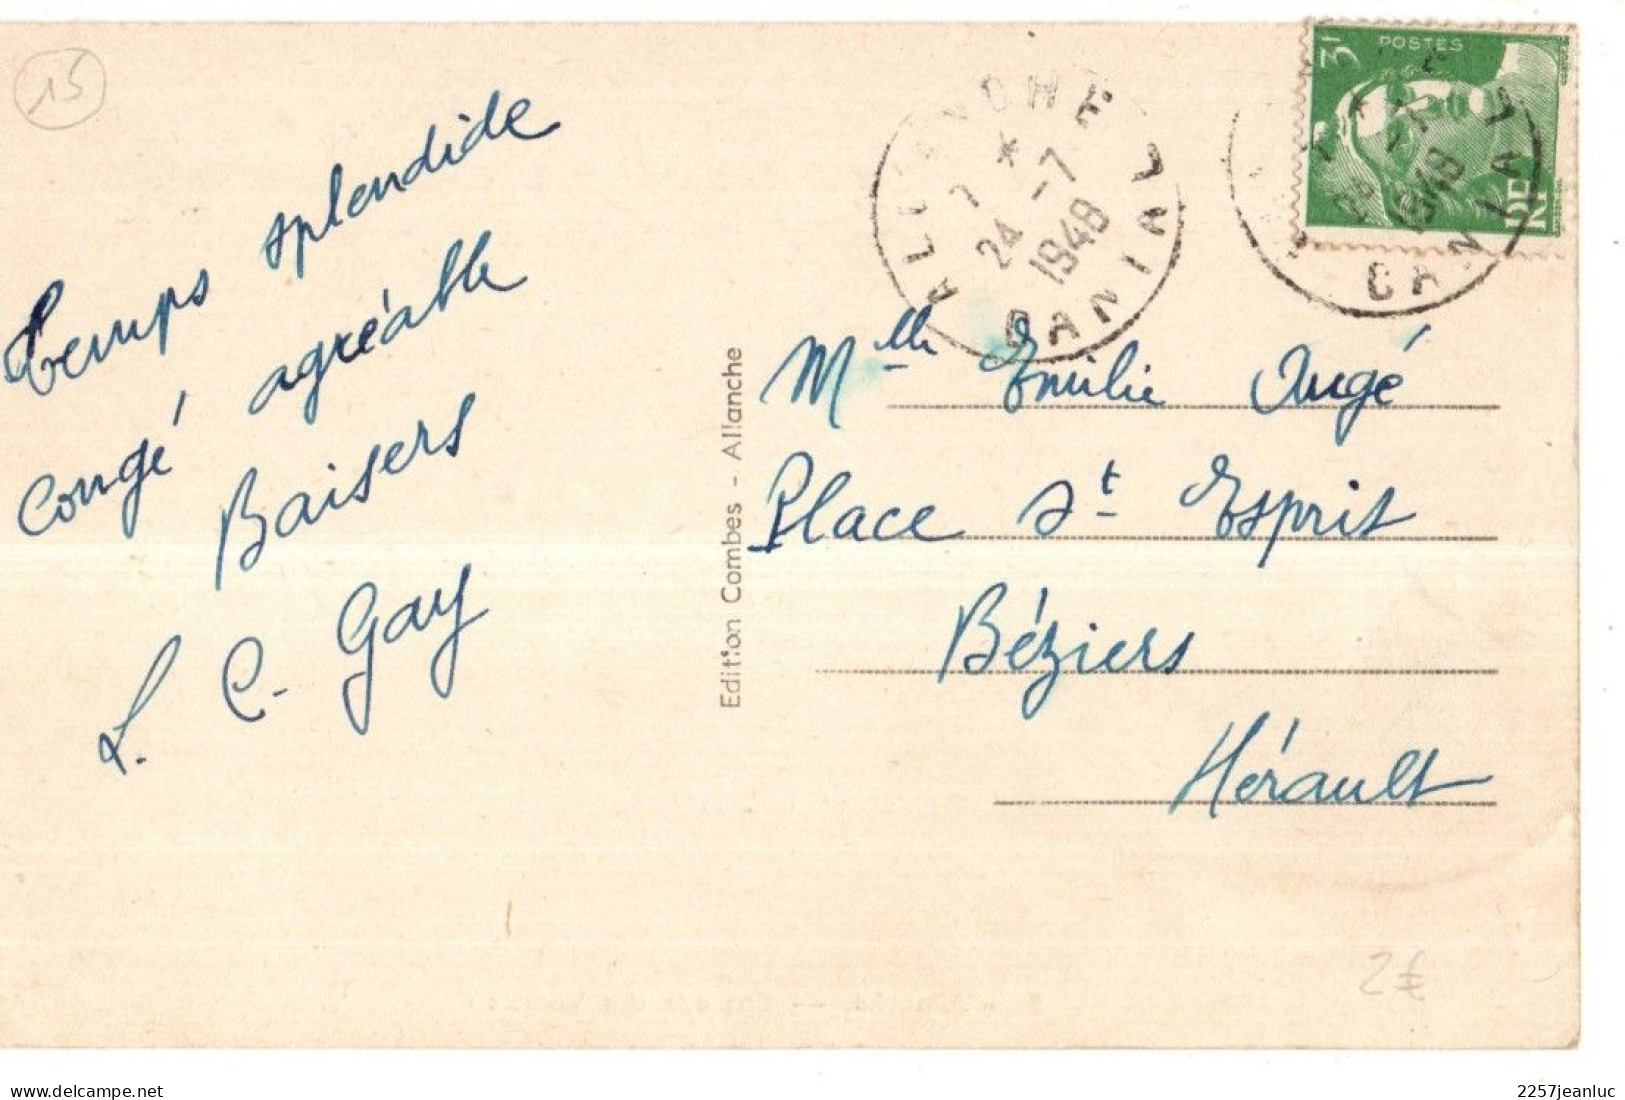 15
Temps splendide
congé agréable
Baisers
L. C. Gay
Edition Combes - Allanche
ALLANCHE
7 *
24 -7
1948
CANTAL
3F
POSTES
RF
1948
CANTAL
Mlle Emilie Augé
Place St Esprit
Béziers
Hérault
2€
2257jeanluc
delcampe.net